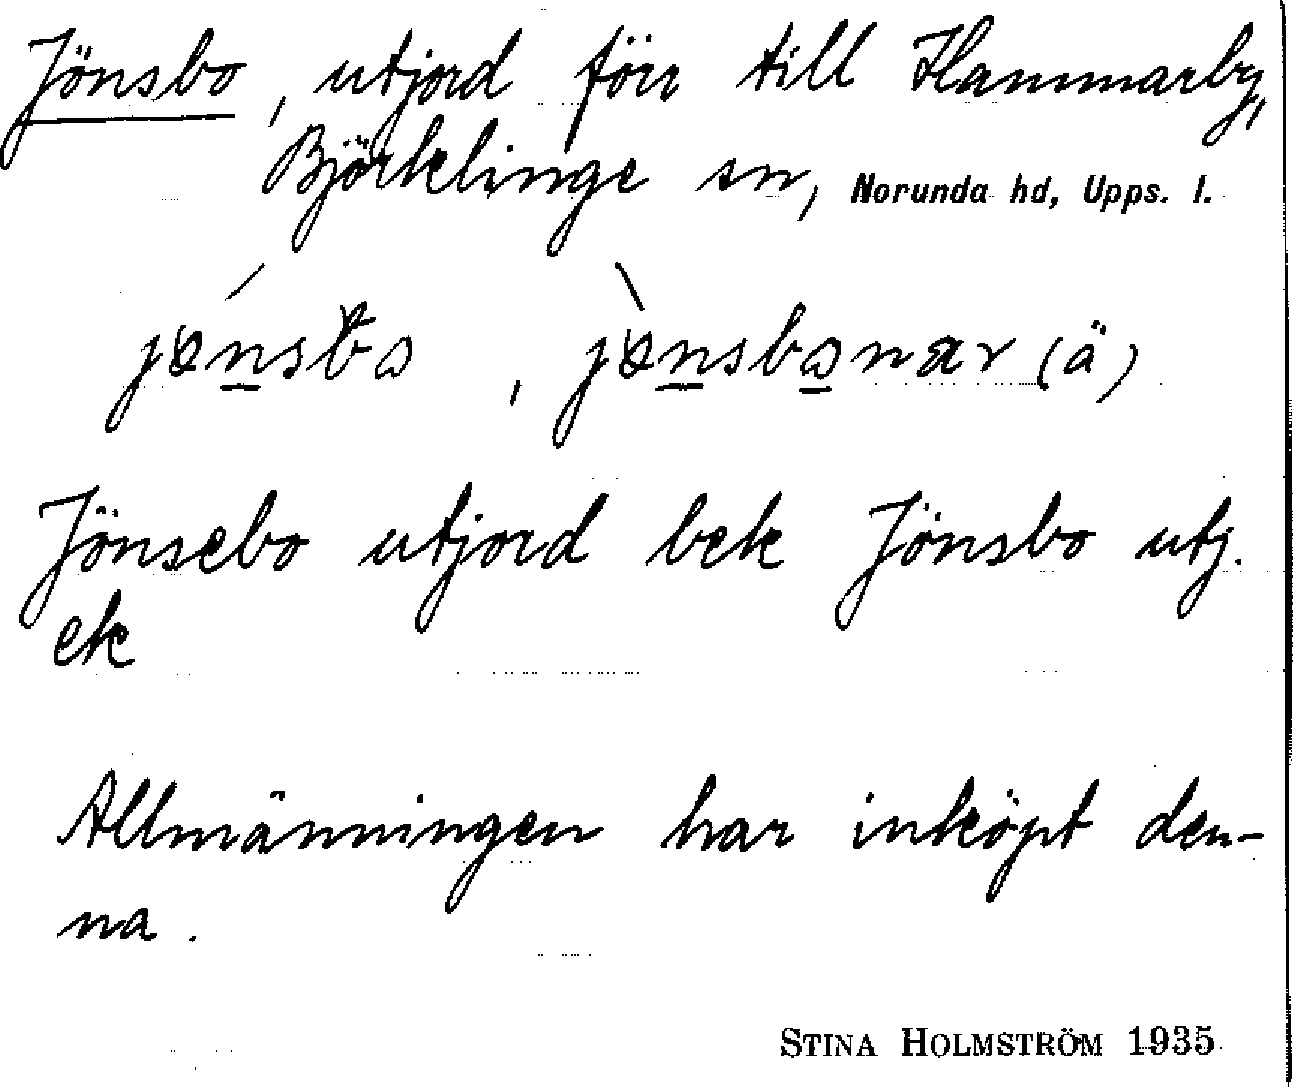 Jönsbo, utjord förr till Hammarby,
Björklinge sn, Norunda hd, Upps. l.
Jönsebo utjord bek Jönsbo utj.
ek
Allmänningen har inköpt den-
na.
STINA HOLMSTRÖM 1935